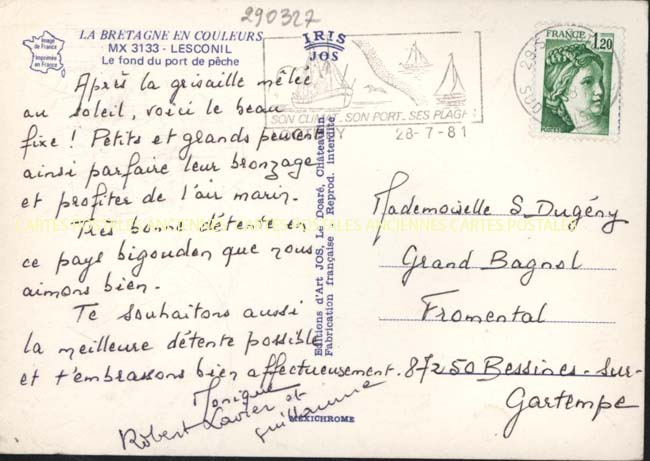 290327
LA BRETAGNE EN COULEURS
MX 3133 - LESCONIL
Le fond du port de pêche
Image de France
Imprimée en France
IRIS
JOS
FRANCE
1,20
POSTES
SON CLIMAT _ SON PORT _ SES PLAGES
LOCTUDY 28-7-81
Après la grisaille mêlée
au soleil, voici le beau
fixe ! Petits et grands peuvent
ainsi parfaire leur bronzage
et profiter de l'air marin.
Très bonne détente en
ce pays bigouden que nous
aimons bien.
Te souhaitons aussi
la meilleure détente possible
et t'embrassons bien affectueusement.
Monique
Robert Xavier et
guillaume
Mademoiselle S. Dugény
Grand Bagnol
Fromental
87250 Bessines-Sur-
Gartempe
Editions d'Art JOS, Le Doaré, Châteaulin
Fabrication française - Reprod. interdite.
MEXICHROME
CARTES POSTALES ANCIENNES CARTES POSTALES ANCIENNES CARTES POSTALES